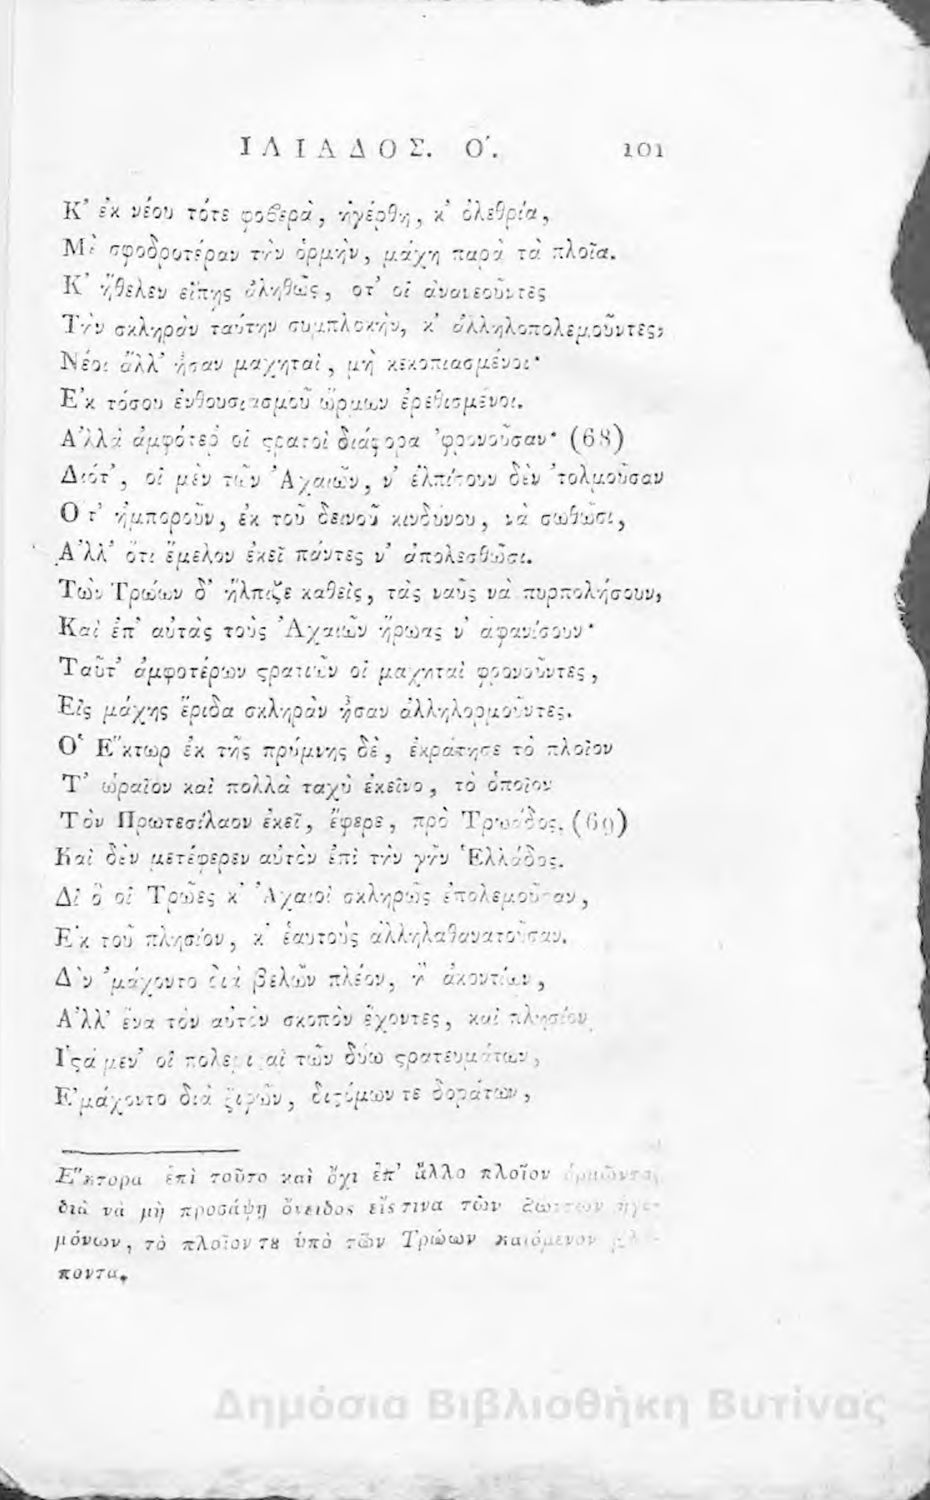 ΙΛΙΑΔΟΣ. Ο'. 101
Κ' ἐκ νέου τότε φοβερὰ, ἠγέρθη, κ' ὀλεθρία,
Μὲ σφοδροτέραν τὴν ὁρμὴν, μάχη παρὰ τὰ πλοῖα.
Κ' ἤθελεν εἴπῃς ἀληθῶς, ὁτ' οἱ ἀνανεοῦντες
Τὴν σκληρὰν ταύτην συμπλοκὴν, κ' ἀλληλοπολεμοῦντες,
Νέοι ἀλλ' ἦσαν μαχηταὶ, μὴ κεκοπιασμένοι·
Ἐκ τόσου ἐνθουσιασμοῦ ὥρμων ἐρεθισμένοι.
Ἀλλὰ ἀμφότερ' οἱ ϛρατοὶ διάφορα 'φρονοῦσαν· (68)
Διότ', οἱ μὲν τῶν Ἀχαιῶν, ν' ἐλπίτουν δὲν 'τολμοῦσαν
Ὅτ' ἠμποροῦν, ἐκ τοῦ δεινοῦ κινδύνου, νὰ σωθῶσι,
Ἀλλ' ὅτι ἔμελον ἐκεῖ πάντες ν' ἀπολεσθῶσι.
Τῶν Τρώων δ' ἤλπιζε καθεὶς, τὰς ναῦς νὰ πυρπολήσουν,
Καὶ ἐπ' αὐτὰς τοὺς Ἀχαιῶν ἥρωας ν' ἀφανίσουν·
Ταῦτ' ἀμφοτέρων ϛρατιῶν οἱ μαχηταὶ φρονοῦντες,
Εἰς μάχης ἔριδα σκληρὰν ἦσαν ἀλληλορμοῦντες.
Ὁ Ἕκτωρ ἐκ τῆς πρύμνης δὲ, ἐκράτησε τὸ πλοῖον
Τ' ὡραῖον καὶ πολλὰ ταχὺ ἐκεῖνο, τὸ ὁποῖον
Τὸν Πρωτεσίλαον ἐκεῖ, ἔφερε, πρὸ Τρωάδος. (69)
Καὶ δὲν μετέφερεν αὐτὸν ἐπὶ τὴν γῆν Ἑλλάδος.
Δι' ὃ οἱ Τρῶες κ' Ἀχαιοὶ σκληρῶς ἐπολεμοῦσαν,
Ἐκ τοῦ πλησίον, κ' ἑαυτοὺς ἀλληλαθανατοῦσαν.
Δὲν 'μάχοντο διὰ βελῶν πλέον, ἢ ἀκοντίων,
Ἀλλ' ἕνα τὸν αὐτὸν σκοπὸν ἔχοντες, καὶ πλησίον
Ἱϛάμεν' οἱ πολεμικαὶ τῶν δύω ϛρατευμάτων,
Ἐμάχοντο διὰ ξιφῶν, διϛόμων τε δοράτων,
Ἕκτορα ἐπὶ τοῦτο καὶ ὄχι ἐπ' ἄλλο πλοῖον ὁρμῶντα,
διὰ νὰ μὴ προσάψῃ ὄνειδος εἴς τινα τῶν ζώντων ἡγε-
μόνων, τὸ πλοῖον τȣ ὑπὸ τῶν Τρώων καιόμενον βλέ-
ποντα.
Δημόσια Βιβλιοθήκη Βυτίνας